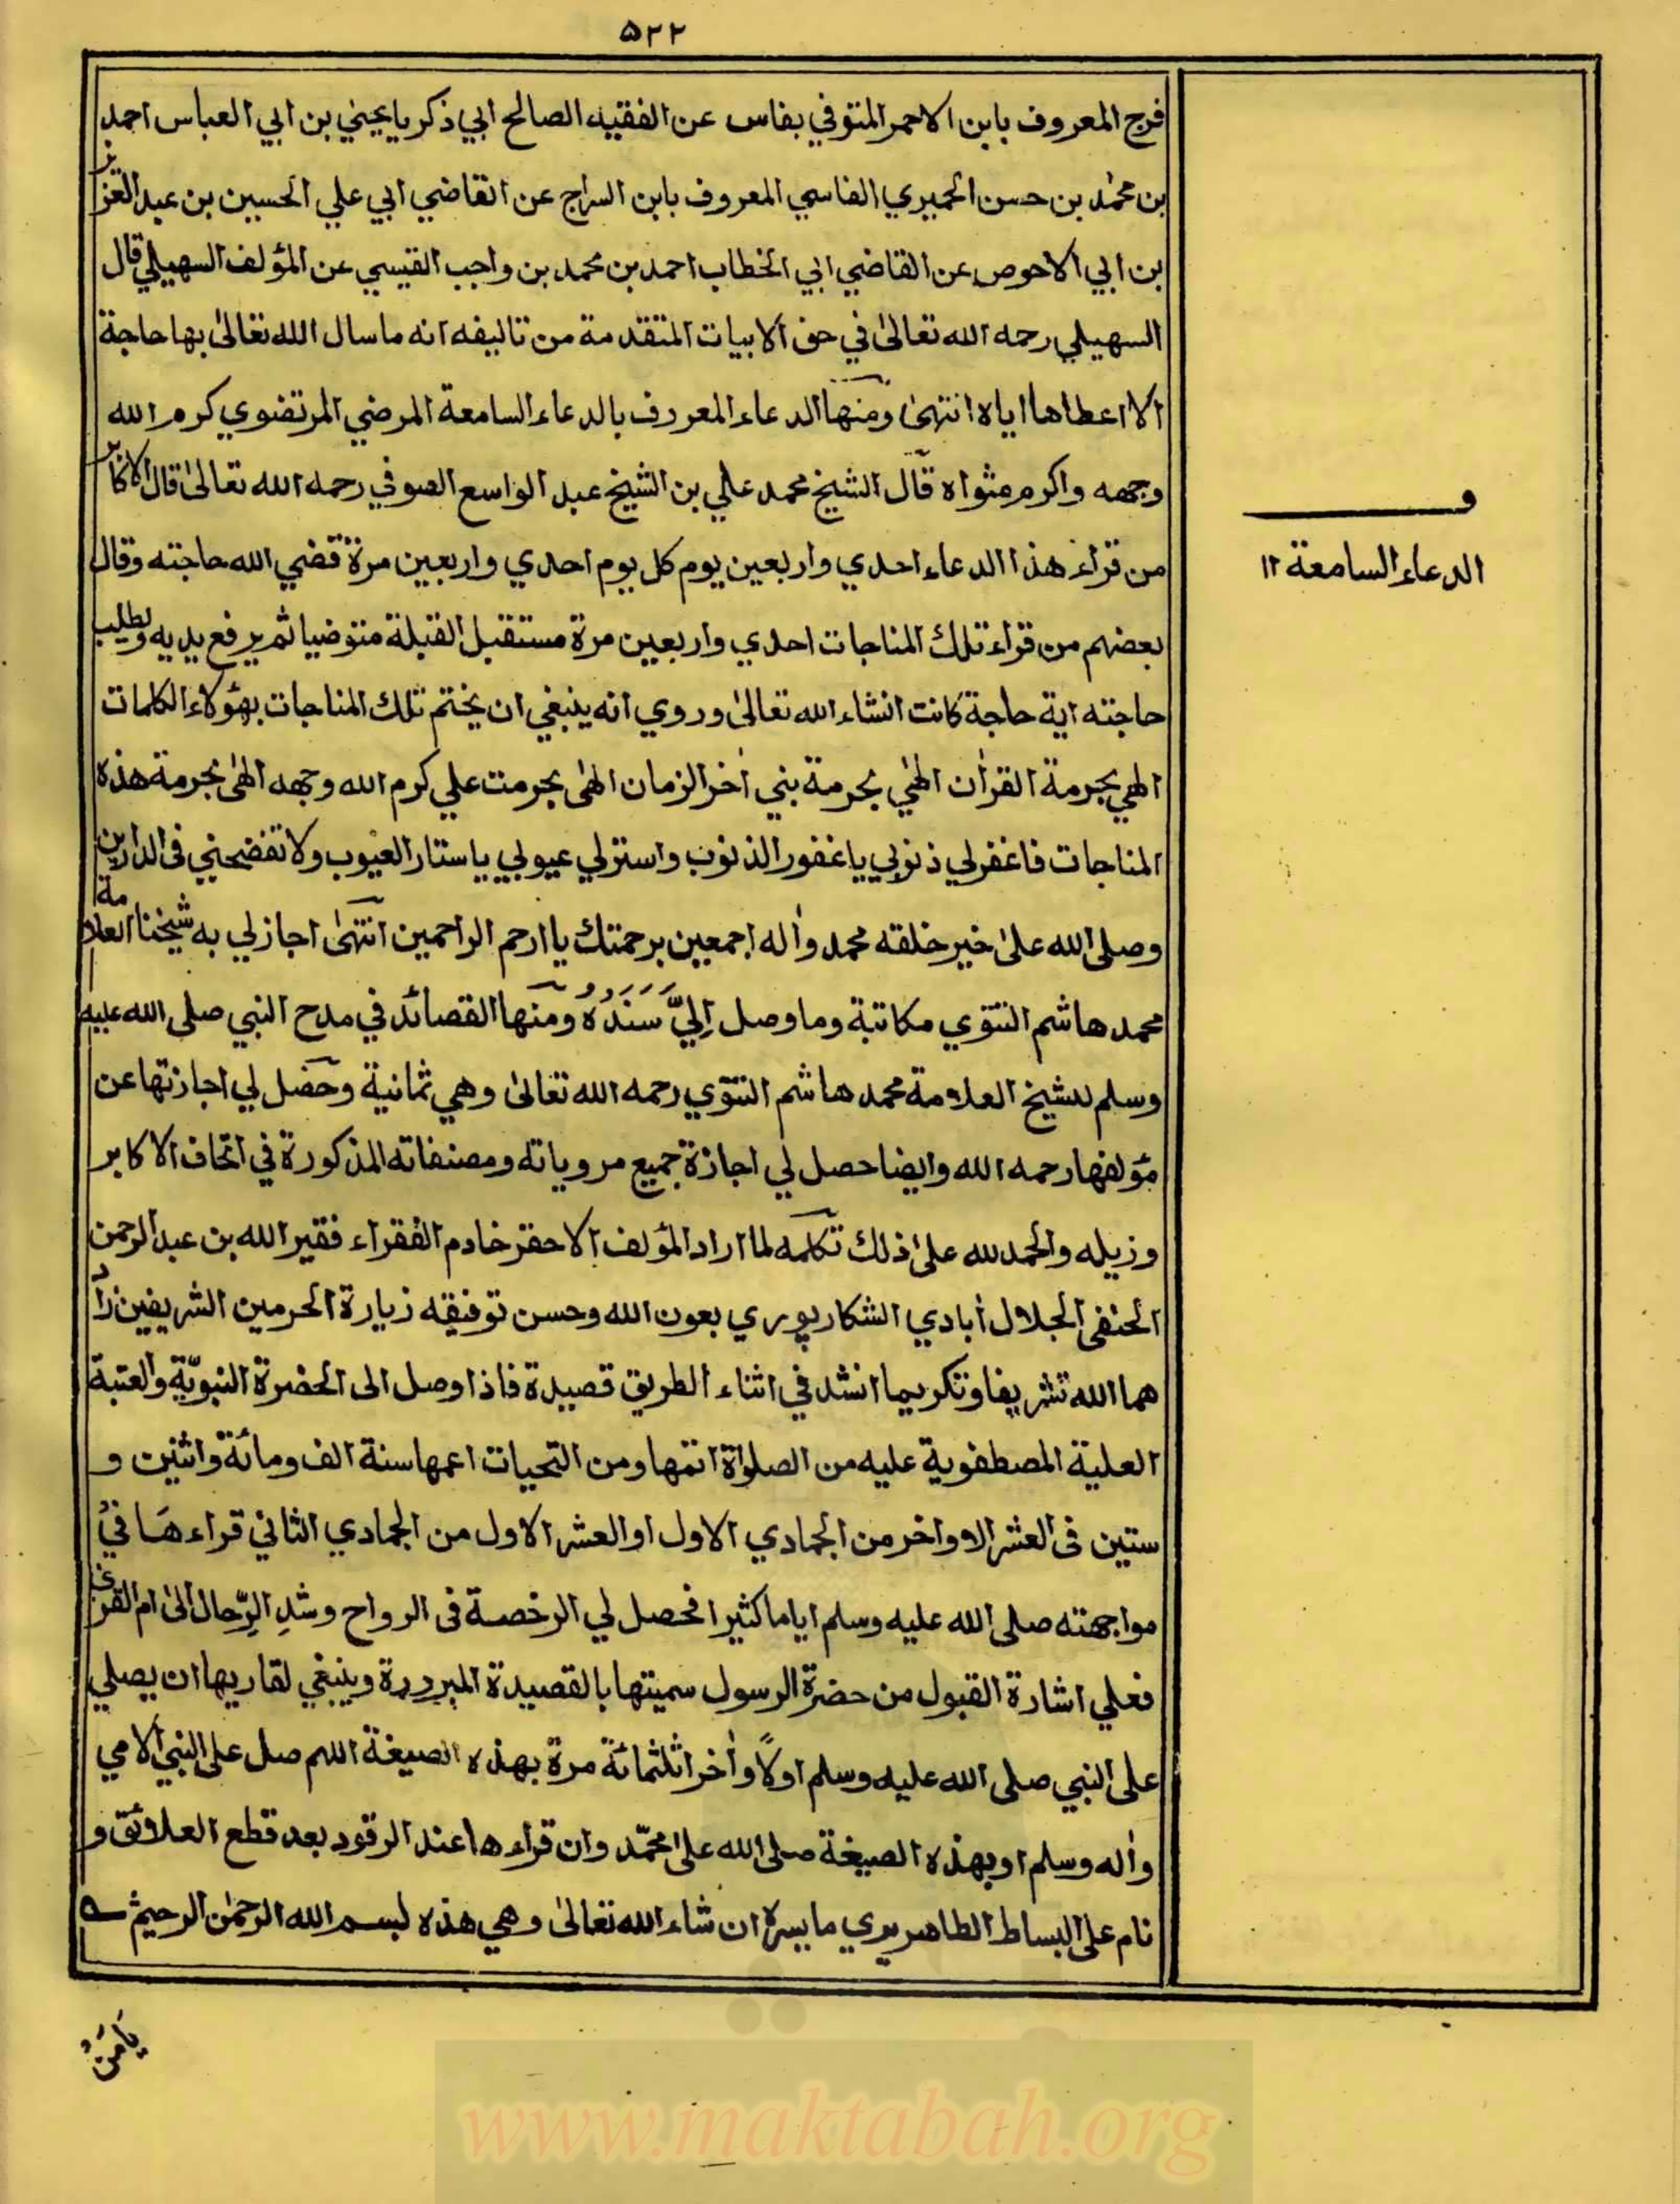 ۵۲۲
فرج المعروف بابن الاحمر المتوفي بفاس عن الفقيه الصالح ابي ذكريا يحيي بن ابي العباس احمد
بن محمد بن حسن الحميري الفاسي المعروف بابن السراج عن القاضي ابي علي الحسين بن عبد العزيز
بن ابي الاحوص عن القاضي ابي الخطاب احمد بن محمد بن واجب القيسي عن المؤلف السهيلي قال
السهيلي رحمه الله تعالىٰ في حق الابيات المتقدمة من تاليفه انه ما سال الله تعالىٰ بها حاجة
الا اعطاها اياه انتهىٰ ومنها الدعاء المعروف بالدعاء السامعة المرضي المرتضوي كرم الله
وجهه واكرم مثواه قال الشيخ محمد علي بن الشيخ عبد الواسع الصوفي رحمه الله تعالىٰ قال الاكابر
من قراء هذا الدعاء احدي واربعين يوم كل يوم احدي واربعين مرة قضي الله حاجته وقال
بعضهم من قراء تلك المناجات احدي واربعين مرة مستقبل القبلة متوضيا ثم يرفع يديه ويطلب
حاجته اية حاجة كانت انشاء الله تعالىٰ وروي انه ينبغي ان يختم تلك المناجات بهؤلاء الكلمات
الهي بحرمة القراٰن الهٰي بحرمة نبي اٰخر الزمان الهٰى بحرمت علي كرم الله وجهه الهٰى بحرمة هذه
المناجات فاغفر لي ذنوبي يا غفور الذنوب واستر لي عيوبي يا ستار العيوب ولا تفضحني فى الدارين
وصلى الله علىٰ خير خلقه محمد واٰله اجمعين برحمتك يا ارحم الراحمين انتهىٰ اجازلي به شيخنا العلامة
محمد هاشم التتوي مكاتبة وما وصل اِليَّ سَنَدُهُ ومنها القصائد في مدح النبي صلى الله عليه
وسلم للشيخ العلامة محمد هاشم التتوي رحمه الله تعالىٰ وهي ثمانية وحصل لي اجازتها عن
مؤلفها رحمه الله وايضا حصل لي اجازة جميع مروياته ومصنفاته المذكورة في اتحاف الاكابر
وزيله والحمد لله علىٰ ذلك تكلمه لما اراد المؤلف الاحقر خادم الفقراء فقير الله بن عبد الرحمن
الحنفى الجلال اٰبادي الشكارپوري بعون الله وحسن توفيقه زيارة الحرمين الشريفين زاد
هما الله تشريفا وتكريما انشد في اثناء الطريق قصيدة فاذا وصل الى الحضرة النبويّة والعتبة
العلية المصطفوية عليه من الصلواة اتمها ومن التحيات اعمها سنة الف ومائة واثنين و
ستين فى العشر الاواخر من الجمادي الاول او العشر الاول من الجمادي الثاني قراءها في
مواجهته صلى الله عليه وسلم اياما كثيرا فحصل لي الرخصة فى الرواح وشدِ الرِّحال الىٰ ام القرى
فعلي اشارة القبول من حضرة الرسول سميتها بالقصيدة المبرورة وينبغي لقاريها ان يصلي
على النبي صلى الله عليه وسلم اولًا واٰخرا ثلثمائة مرة بهذه الصيغة اللهم صل على النبي الامي
واٰله وسلم او بهذه الصيغة صلى الله علىٰ محمّد وان قراءها عند الرقود بعد قطع العلائق و
نام على البساط الطاهر يري ما يسره ان شاء الله تعالىٰ وهي هذه بسم الله الرحمٰن الرحيم
و
الدعاء السامعة ١٢
يَامَنْ
www.maktabah.org